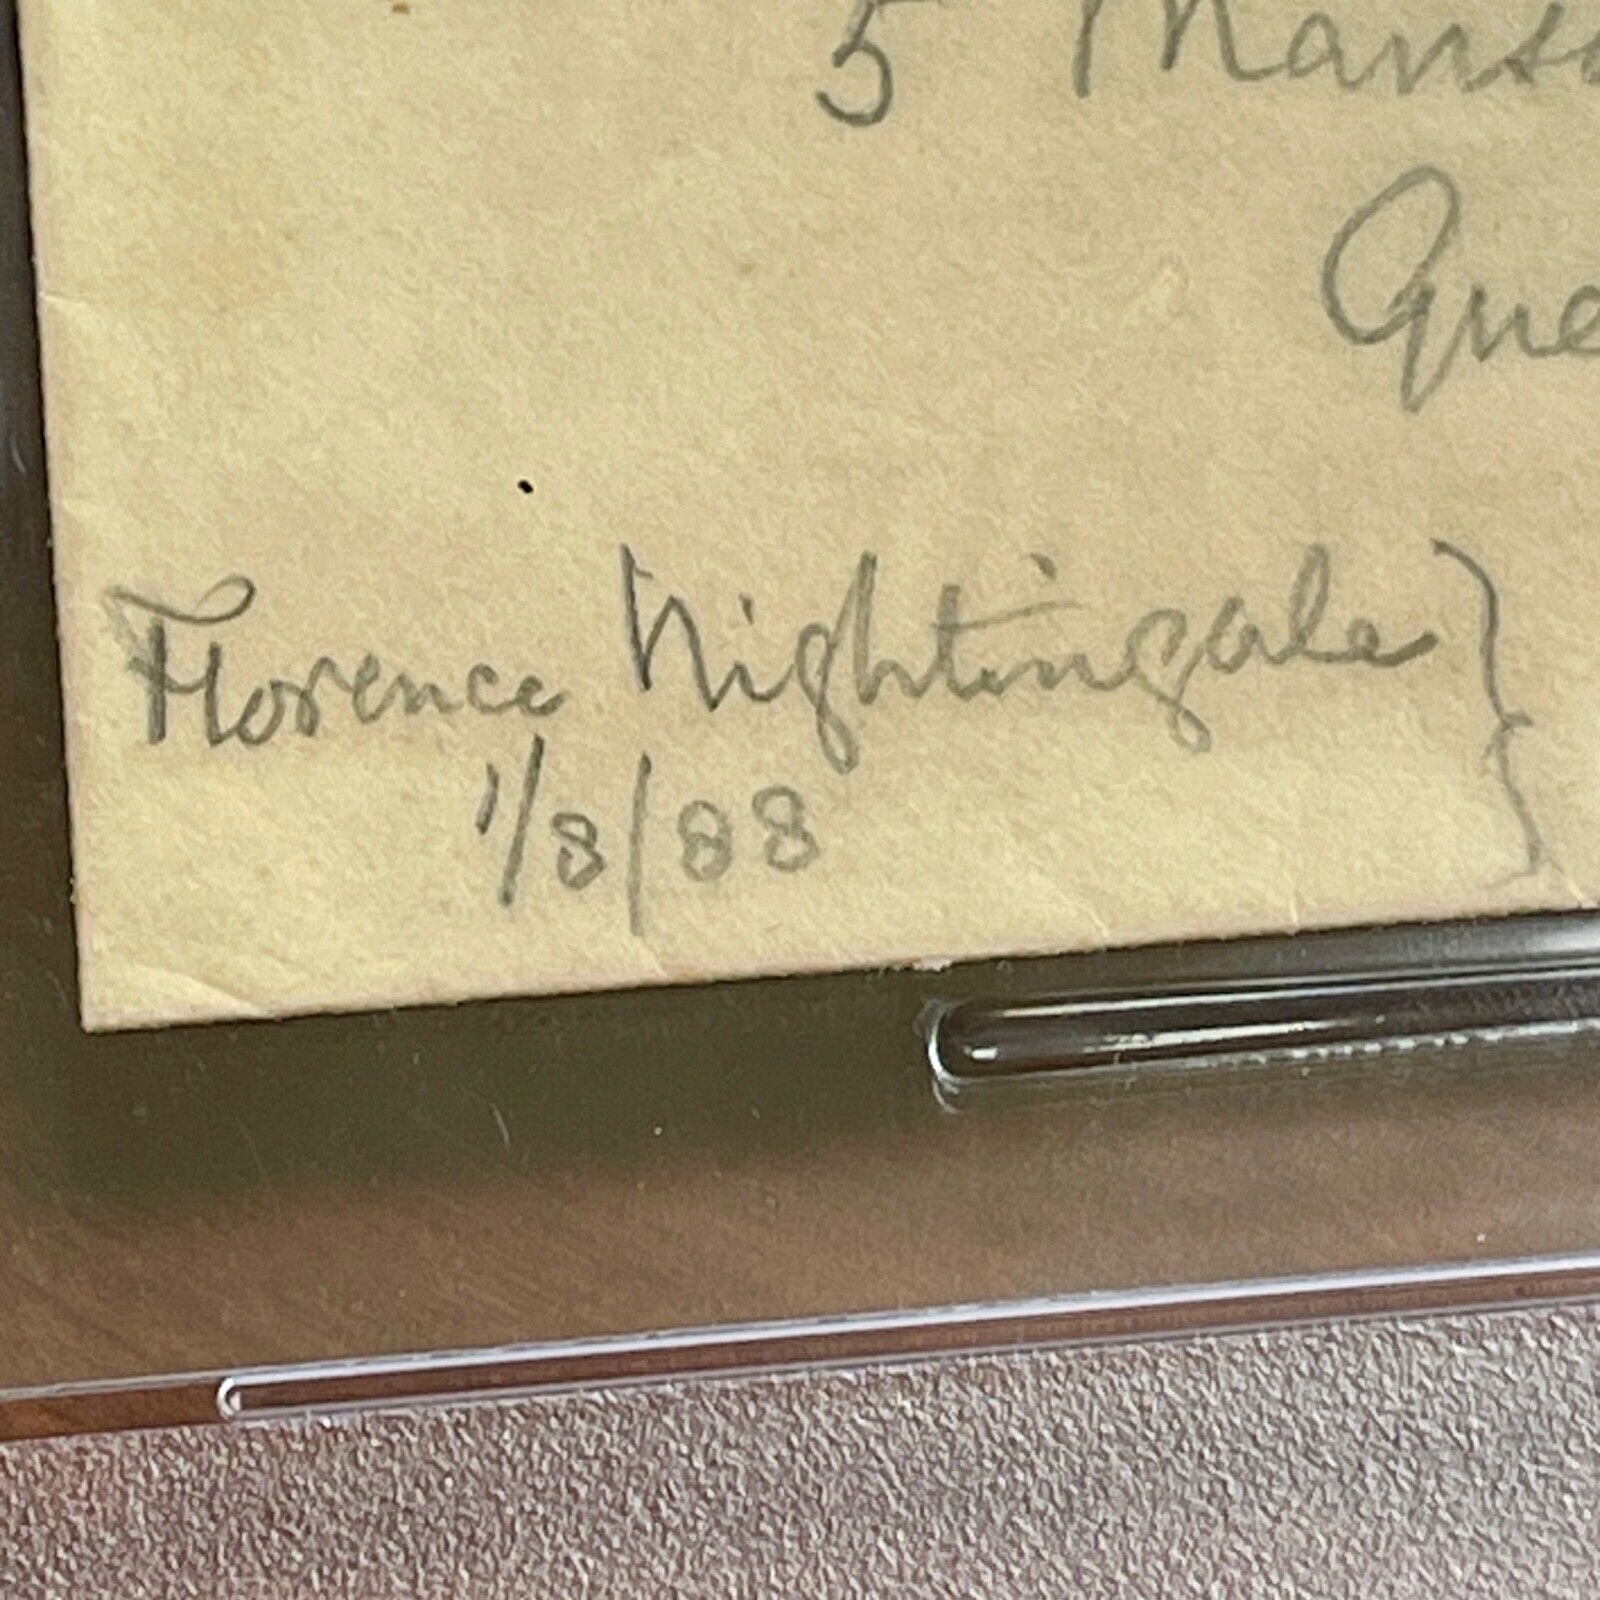 5 Mans
Que
Florence Nightingale }
1/8/88